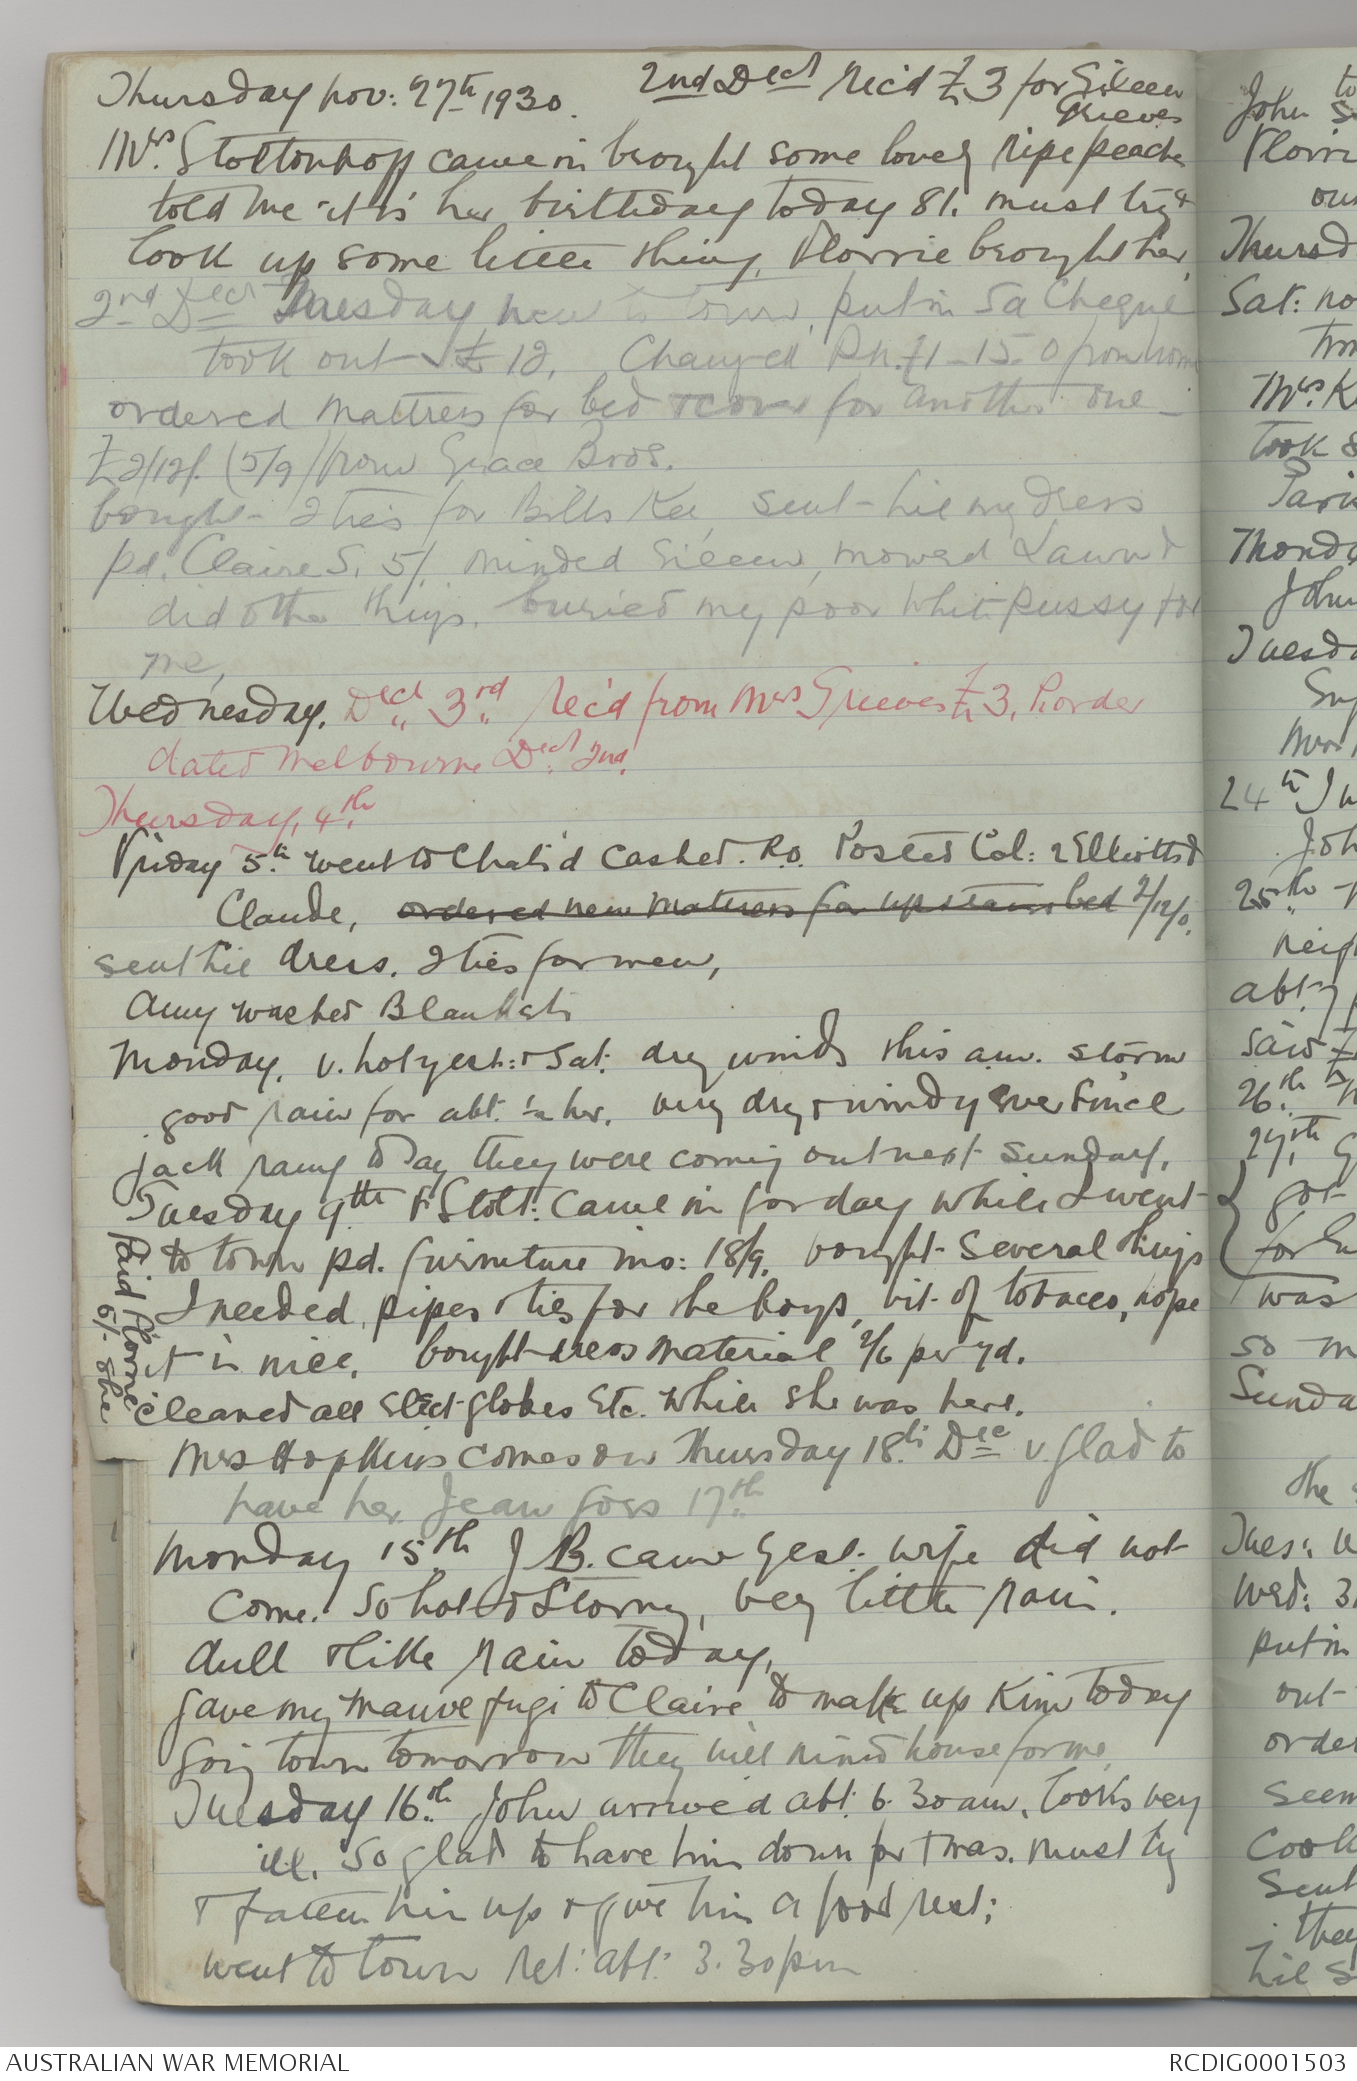 Thursday Nov: 27th 1930. 2nd Dect rec'd £3 for Eileen
Grieves
Mrs. Stottonhoff came in brought some lovely ripe peaches
told me it is her birthday today 81. must try &
look up some little thing, Florrie brought her.
2nd Dect Tuesday new to town, put in Sa Cheque
took out £12, Changed P.n. £1-15-0 from home
ordered mattress for bed & cover for another one -
£2/12/. (5/9) from Grace Bros.
bought 2 ties for Bill & Ke sent hil my dress
pd. Claire S. 5/. minded Eileen, mowed Lawn &
did other things. buried my poor white pussy for
me,
Wednesday, Dect 3rd rec'd from Mrs Grieves £3. P. order
dated Melbourne Dect 2nd.
Thursday, 4th
Friday 5th went to Chats'd cashed P.o. Posted Col: 2 Elliotts &
Claude, ordered new mattress for upstairs bed 2/12/0.
sent hil dress. 2 ties for men,
Amy washed Blankets
Monday, v. hot yest: & Sat. dry winds this am. storm
good rain for abt. ½ hr. very dry & windy ever since
Jack rang today they were coming out next Sunday.
Tuesday 9th F Stott: came in for day while I went
to town pd. furniture mo: 18/9. bought several things
I needed, pipes & ties for the boys, bit of tobacco, hope
it is nice. bought dress material 2/6 per yd.
Paid Florrie
5/- she
cleaned all Elect globes Etc. while she was here.
Mrs Hopkins comes on Thursday 18th Dec v. glad to
have her Jean goes 17th
Monday 15th J B. came yest. wife did not
come. So hot & Stormy, very little rain.
dull & like rain today,
gave my mauve fugi to Claire to make up Kim today
going town tomorrow they will mind house for me
Tuesday 16th John arrived abt. 6.30 am, looks very
ill. So glad to have him down for Xmas. must try
& fatten him up & give him a good rest;
went to town ret: abt. 3.30 pm
AUSTRALIAN WAR MEMORIAL
RCDIG0001503